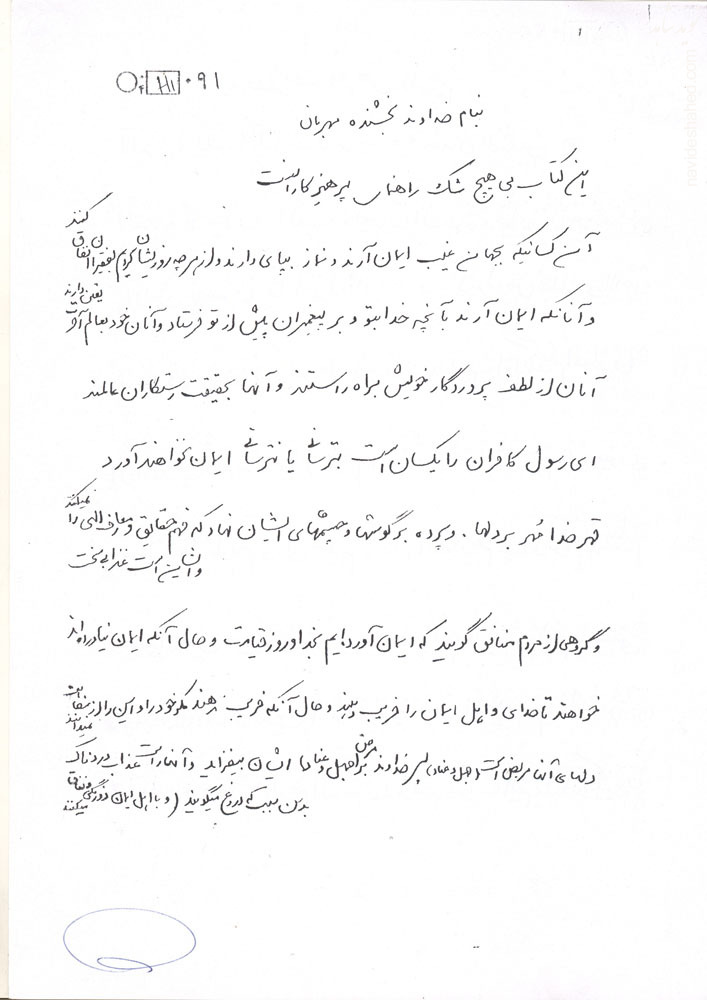 ۰۹۱
بنام خداوند بخشنده مهربان
این کتاب بی هیچ شک راهنمای پرهیزکارانست
آن کسانیکه بجهان غیب ایمان آرند و نماز بپای دارند و از هر چه روزیشان کردیم بفقیران انفاق کنند
و آنانکه ایمان آرند بآنچه خدا بتو و بر پیغمبران پیش از تو فرستاد و آنان خود بعالم آخرت یقین دارند
آنان از لطف پروردگار خویش براه راستند و آنها بحقیقت رستکاران عالمند
ای رسول کافران را یکسان است بترسانی یا نترسانی ایمان نخواهند آورد
قهر خدا مُهر بر دلها . و پرده بر گوشها و چشمهای ایشان نهاد که فهم حقایق و معارف الهی را نمیکنند
و ایشان است عذابی سخت
و گروهی از مردم منافق گویند که ایمان آورده‌ایم بخدا و روز قیامت و حال آنکه ایمان نیاورده‌اند
خواهند تا خدای و اهل ایمان را فریب دهند و حال آنکه فریب ندهند مگر خود را و این را از سفاهت نمیدانند
دلهای آنها مریض است (جهل و عناد) پس خداوند بر مرض جهل و عناد ایشان بیفزاید و آنها راست عذاب دردناک
بدین سبب که دروغ میگویند (و با اهل ایمان دورنگی و نفاق میکنند
navideshahed.com